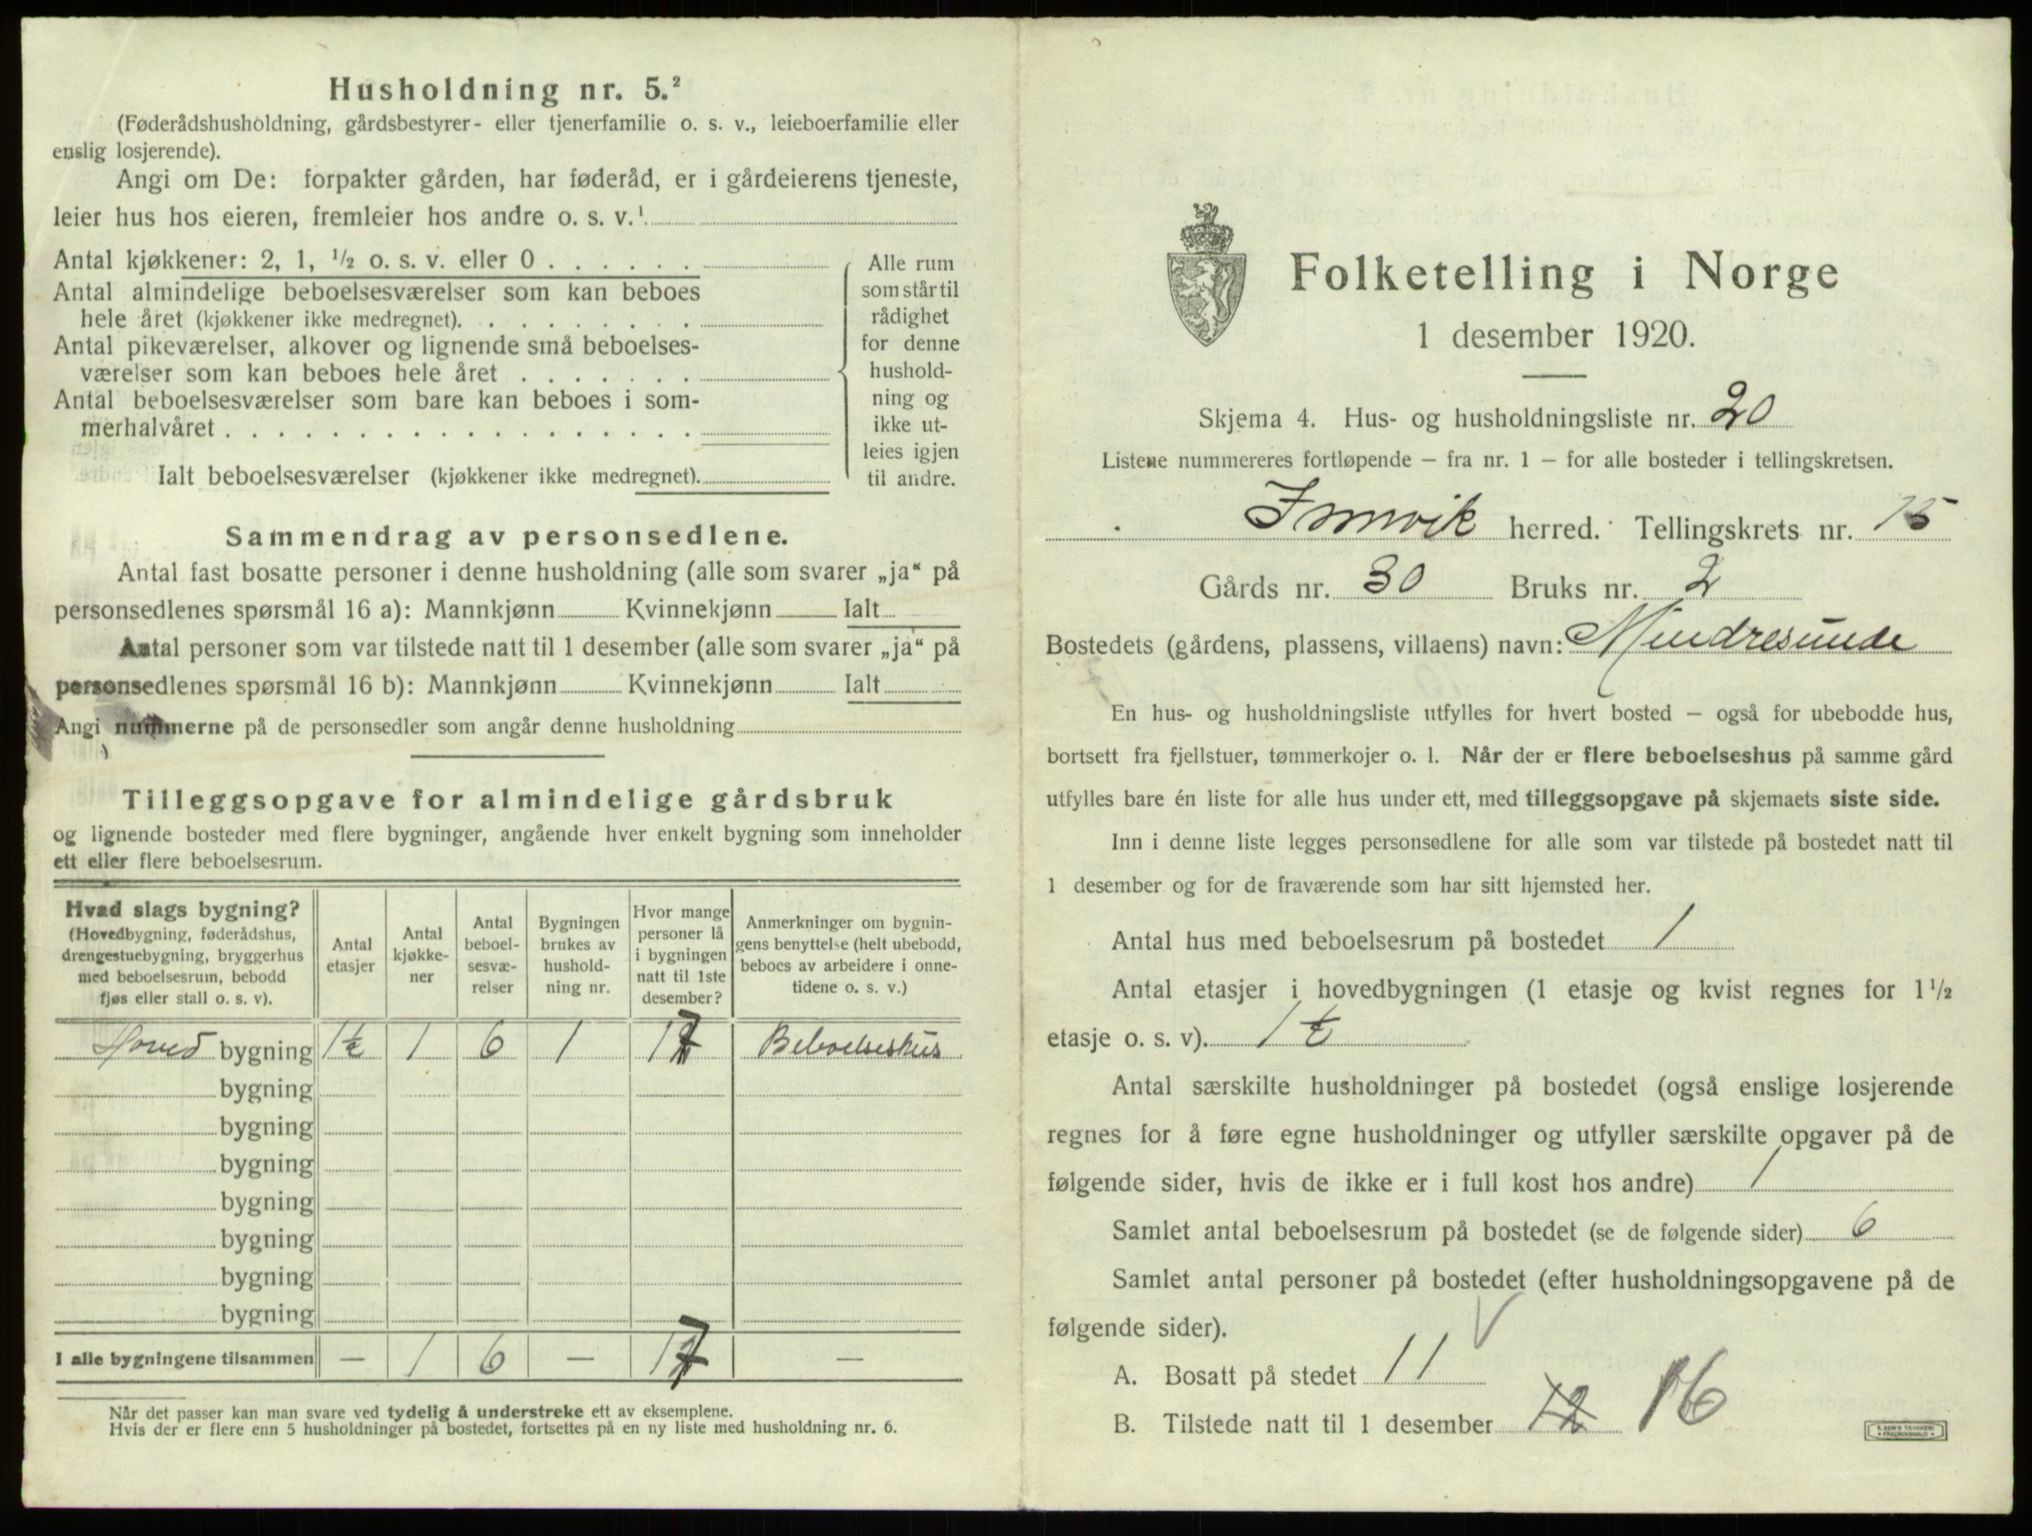 Husholdning nr. 5.²
(Føderådshusholdning, gårdsbestyrer- eller tjenerfamilie o. s. v., leieboerfamilie eller
enslig losjerende).
Angi om De: forpakter gården, har føderåd, er i gårdeierens tjeneste,
leier hus hos eieren, fremleier hos andre o. s. v.¹
Antal kjøkkener: 2, 1, ½ o. s. v. eller 0 . . . . . .
Antal almindelige beboelsesværelser som kan beboes
hele året (kjøkkener ikke medregnet). . . . . . . . .
Antal pikeværelser, alkover og lignende små beboelses-
værelser som kan beboes hele året . . . . . . .
Antal beboelsesværelser som bare kan beboes i som-
merhalvåret . . . . . . . . . . . . . . . . . .
Ialt beboelsesværelser (kjøkkener ikke medregnet).
Alle rum
som står til
rådighet
for denne
hushold-
ning og
ikke ut-
leies igjen
til andre.
Sammendrag av personsedlene.
Antal fast bosatte personer i denne husholdning (alle som svarer „ja“ på
personsedlenes spørsmål 16 a): Mannkjønn Kvinnekjønn Ialt
Antal personer som var tilstede natt til 1 desember (alle som svarer „ja“ på
personsedlenes spørsmål 16 b): Mannkjønn Kvinnekjønn Ialt
Angi nummerne på de personsedler som angår denne husholdning
Tilleggsopgave for almindelige gårdsbruk
og lignende bosteder med flere bygninger, angående hver enkelt bygning som inneholder
ett eller flere beboelsesrum.
Hvad slags bygning?
(Hovedbygning, føderådshus,
drengestuebygning, bryggerhus
med beboelsesrum, bebodd
fjøs eller stall o. s. v).
Antal
etasjer
Antal
kjøkke-
ner
Antal
beboel-
sesvæ-
relser
Bygningen
brukes av
hushold-
ning nr.
Hvor mange
personer lå
i bygningen
natt til 1ste
desember?
Anmerkninger om bygnin-
gens benyttelse (helt ubebodd,
beboes av arbeidere i onne-
tidene o. s. v.)
Hoved bygning 1½ 1 6 1 17 Beboelseshus
bygning
bygning
bygning
bygning
bygning
bygning
bygning
I alle bygningene tilsammen — 1 6 — 17 —
Når det passer kan man svare ved tydelig å understreke ett av eksemplene.
Hvis der er flere enn 5 husholdninger på bostedet, fortsettes på en ny liste med husholdning nr. 6.
Folketelling i Norge
1 desember 1920.
Skjema 4. Hus- og husholdningsliste nr. 20
Listene nummereres fortløpende — fra nr. 1 — for alle bosteder i tellingskretsen.
Innvik herred. Tellingskrets nr. 15
Gårds nr. 30 Bruks nr. 2
Bostedets (gårdens, plassens, villaens) navn: Mindresunde
En hus- og husholdningsliste utfylles for hvert bosted — også for ubebodde hus,
bortsett fra fjellstuer, tømmerkojer o. l. Når der er flere beboelseshus på samme gård
utfylles bare én liste for alle hus under ett, med tilleggsopgave på skjemaets siste side.
Inn i denne liste legges personsedlene for alle som var tilstede på bostedet natt til
1 desember og for de fraværende som har sitt hjemsted her.
Antal hus med beboelsesrum på bostedet 1
Antal etasjer i hovedbygningen (1 etasje og kvist regnes for 1½
etasje o. s. v). 1½
Antal særskilte husholdninger på bostedet (også enslige losjerende
regnes for å føre egne husholdninger og utfyller særskilte opgaver på de
følgende sider, hvis de ikke er i full kost hos andre) 1
Samlet antal beboelsesrum på bostedet (se de følgende sider) 6
Samlet antal personer på bostedet (efter husholdningsopgavene på de
følgende sider).
A. Bosatt på stedet 11
B. Tilstede natt til 1 desember 12 16